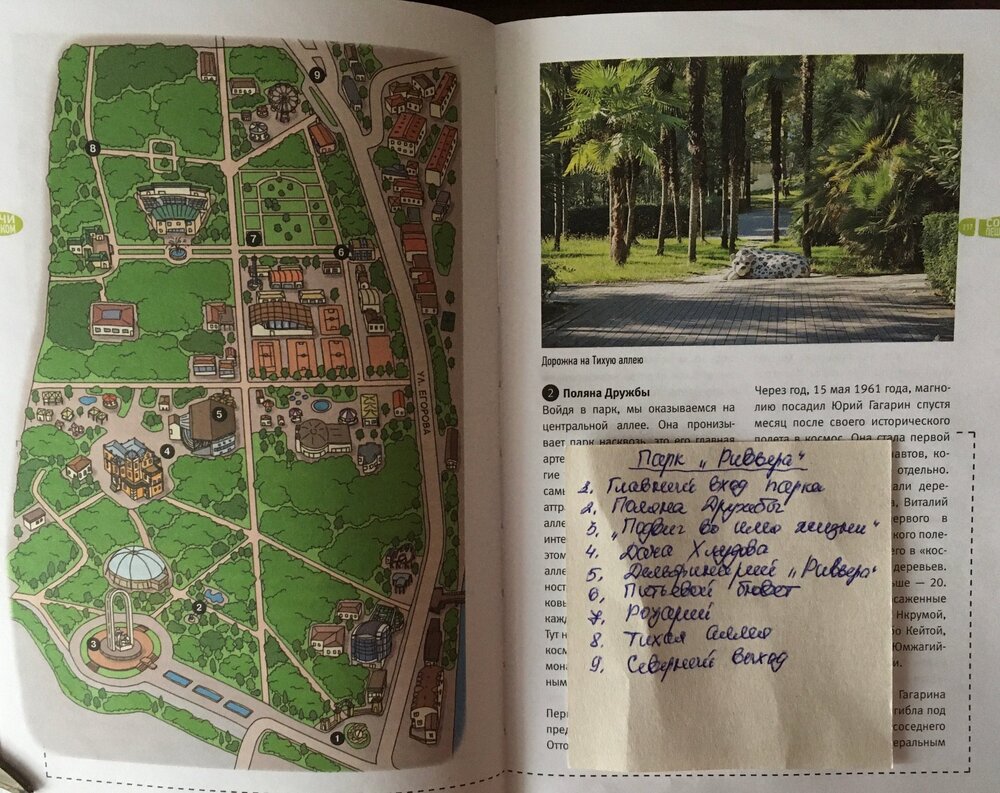 ЧИ
КОМ
9
8
7
6
УЛ. ЕГОРОВА
5
4
2
3
1
Дорожка на Тихую аллею
2 Поляна Дружбы
Войдя в парк, мы оказываемся на
центральной аллее. Она пронизы-
вает парк насквозь, это его главная
арте
гие
самы
аттра
алле
инте
этом
алле
ност
ковы
кажд
Тут н
косм
мона
ным
Перв
пред
Отто
Через год, 15 мая 1961 года, магно-
лию посадил Юрий Гагарин спустя
месяц после своего исторического
полета в космос. Она стала первой
навтов, ко-
отдельно.
али дере-
а, Виталий
ервого в
ского поле-
его в «кос-
деревьев.
ьше — 20.
саженные
Нкрумой,
бо Кейтой,
Юмжагий-
и.
Гагарина
гибла под
соседнего
еральным
Парк „Ривьера“
1. Главный вход парка
2. Поляна Дружбы
3. „Подвиг во имя жизни“
4. Дача Хлудова
5. Дельфинарий „Ривьера“
6. Питьевой бювет
7. Розарий
8. Тихая аллея
9. Северный выход